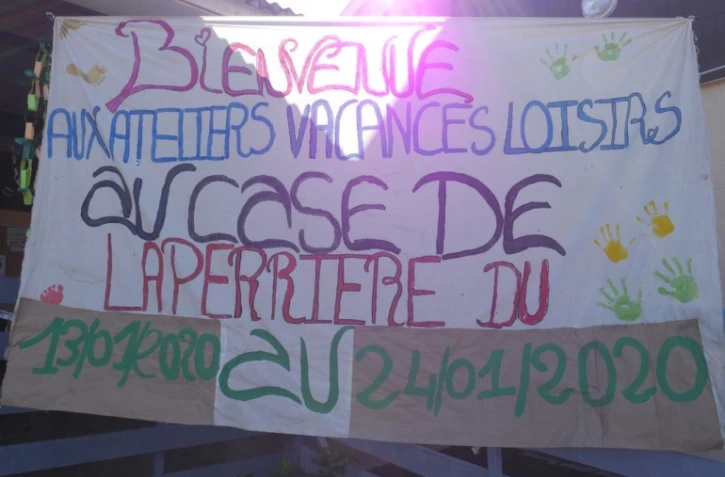 BIENVENUE
AUX ATELIERS VACANCES LOISIRS
AU CASE DE
LAPERRIERE DU
13/01/2020 AU 24/01/2020